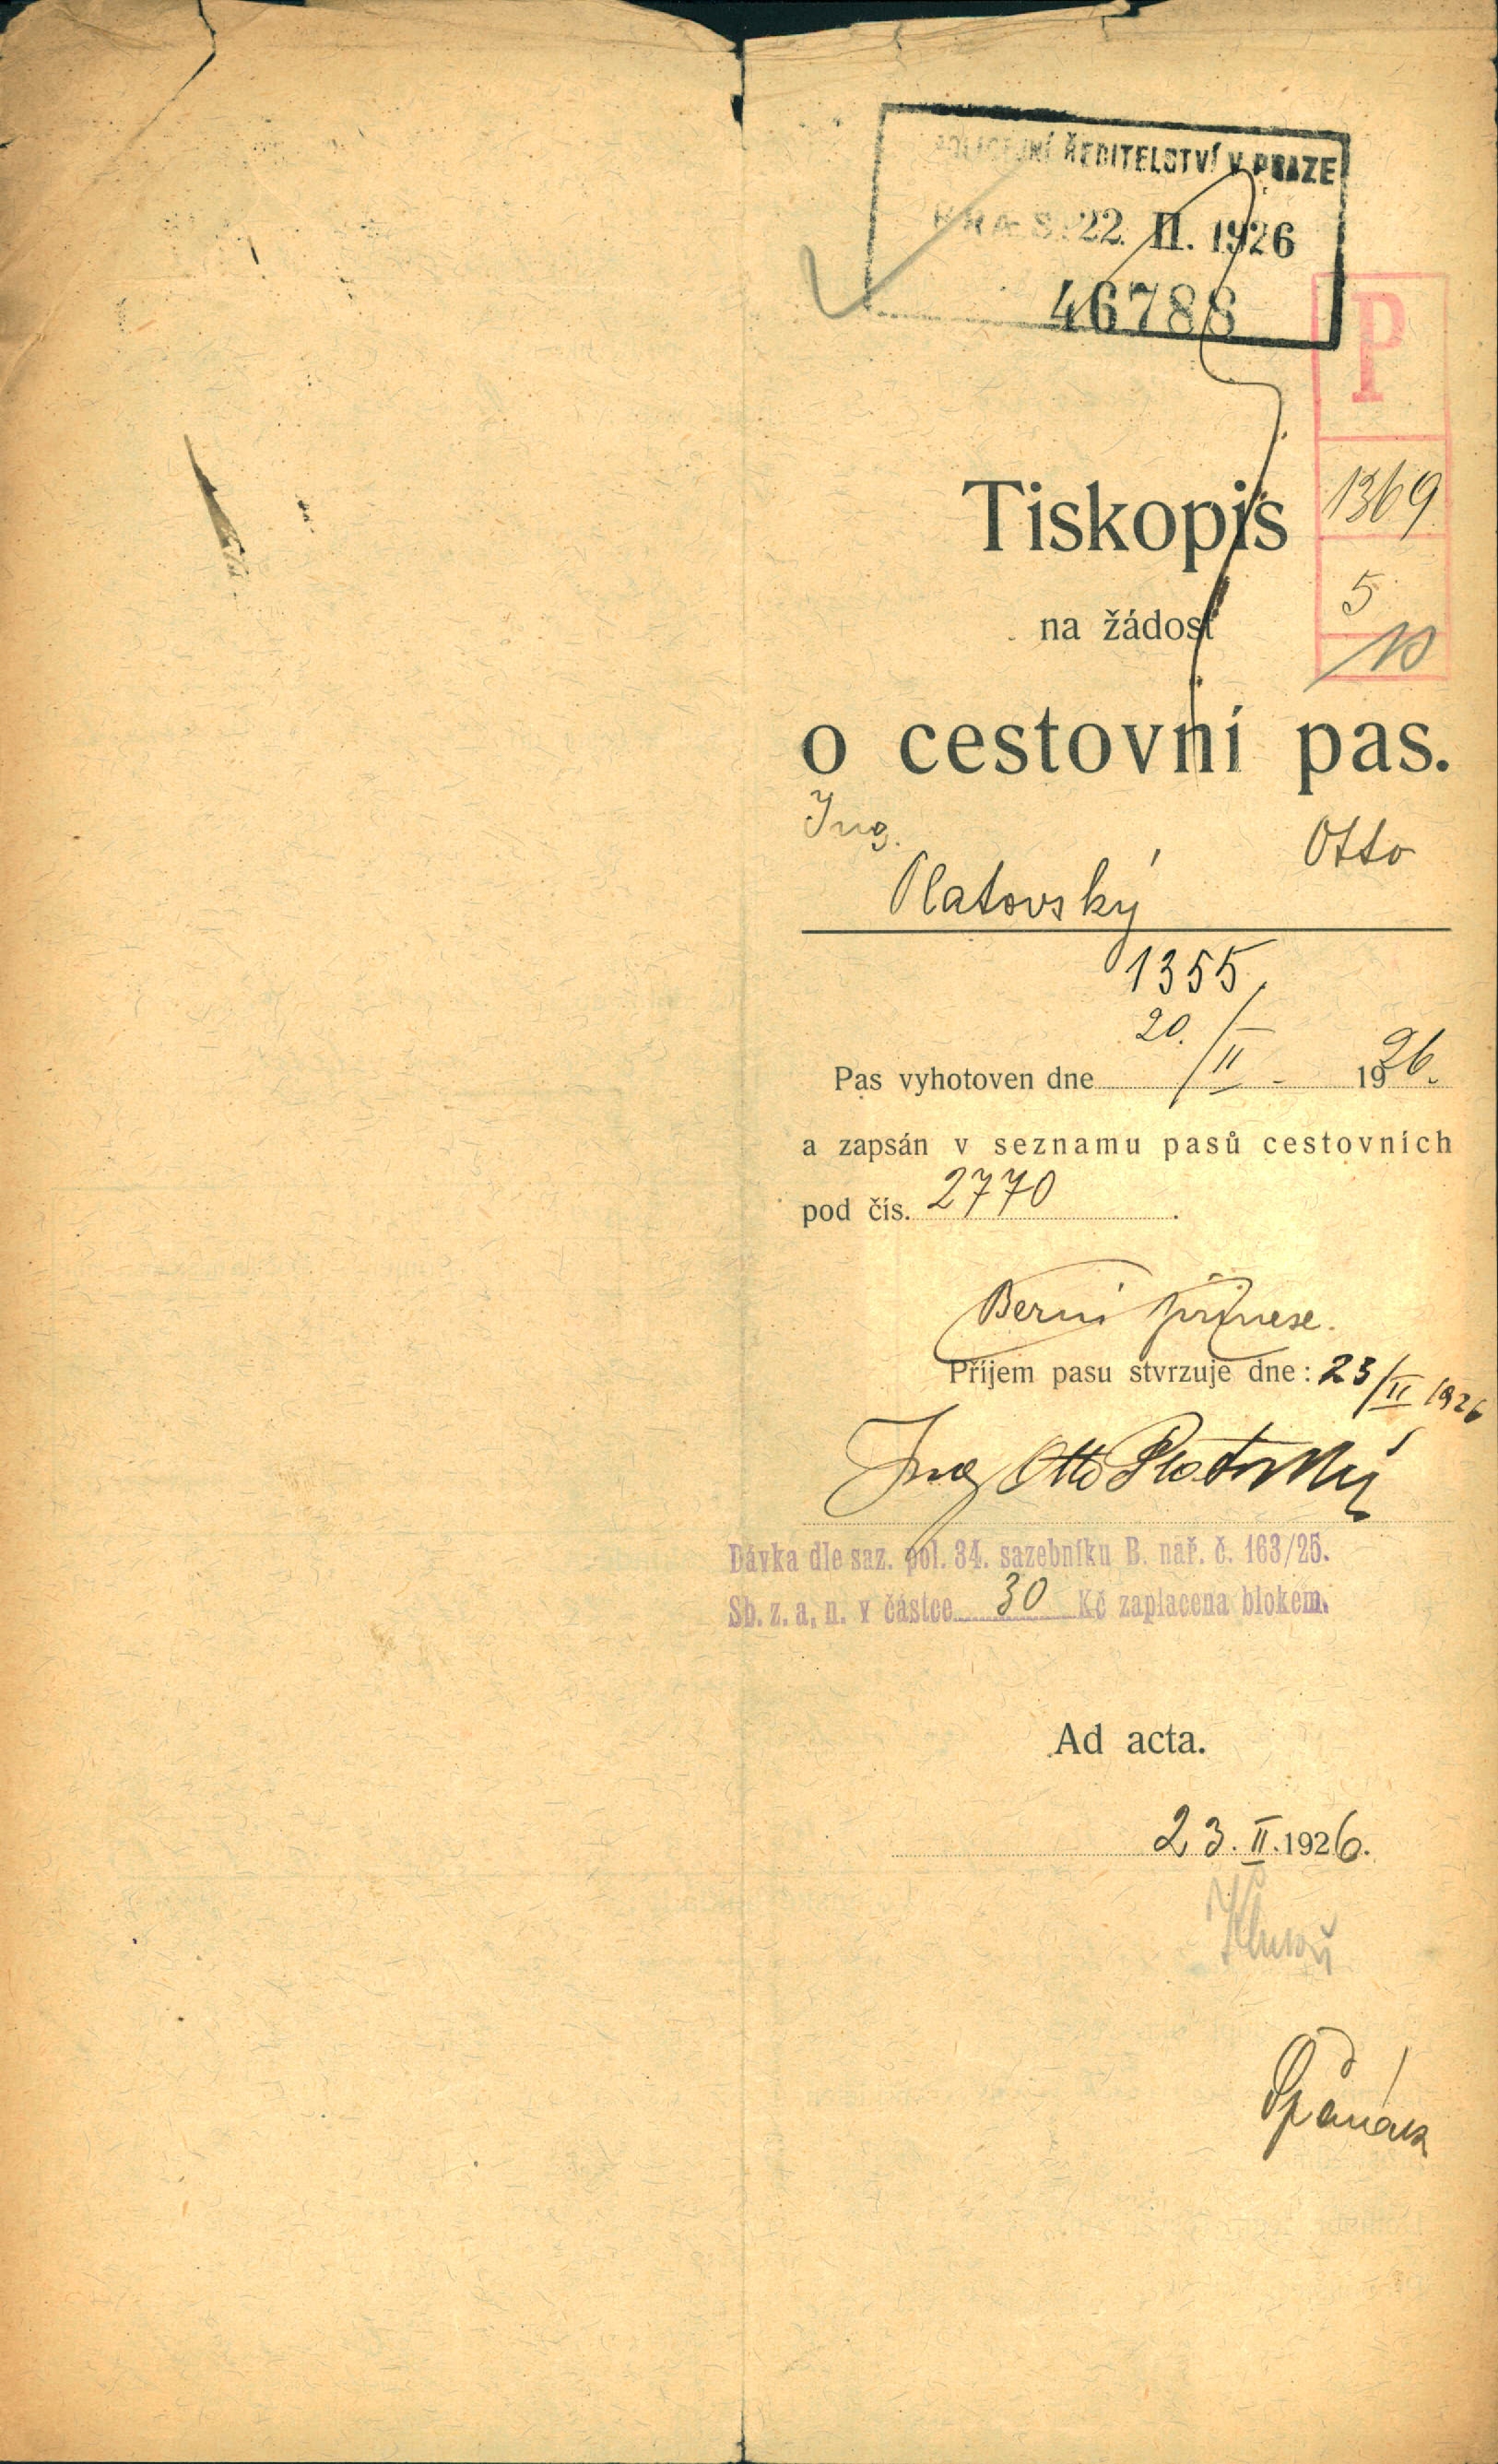 POLICEJNÍ ŘEDITELSTVÍ V PRAZE
PRAES. 22. II. 1926
46788
P
1369
5
10
Tiskopis
na žádost
o cestovní pas.
Ing. Otto
Platovský
1355
20./II - 1926.
Pas vyhotoven dne
a zapsán v seznamu pasů cestovních
pod čís. 2770.
Berní přinese.
Příjem pasu stvrzuje dne: 23/II 1926
Ing Otto Platovský
Dávka dle saz. pol. 34. sazebníku B. nař. č. 163/25.
Sb. z. a. n. v částce 30 Kč zaplacena blokem.
Ad acta.
23. II. 1926.